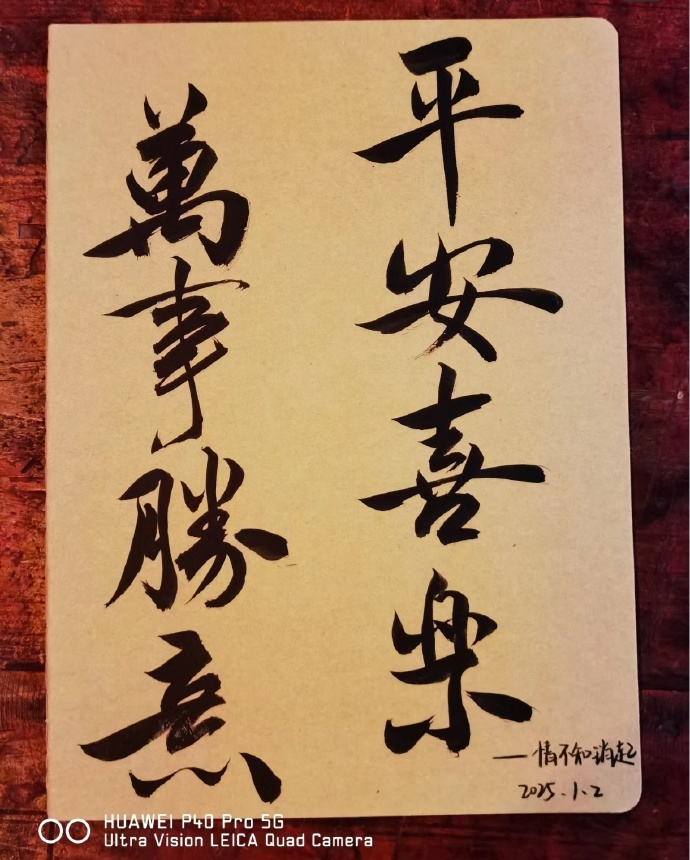 平安喜樂
萬事勝意
一情不知消起
2025.1.2
HUAWEI P40 Pro 5G
Ultra Vision LEICA Quad Camera